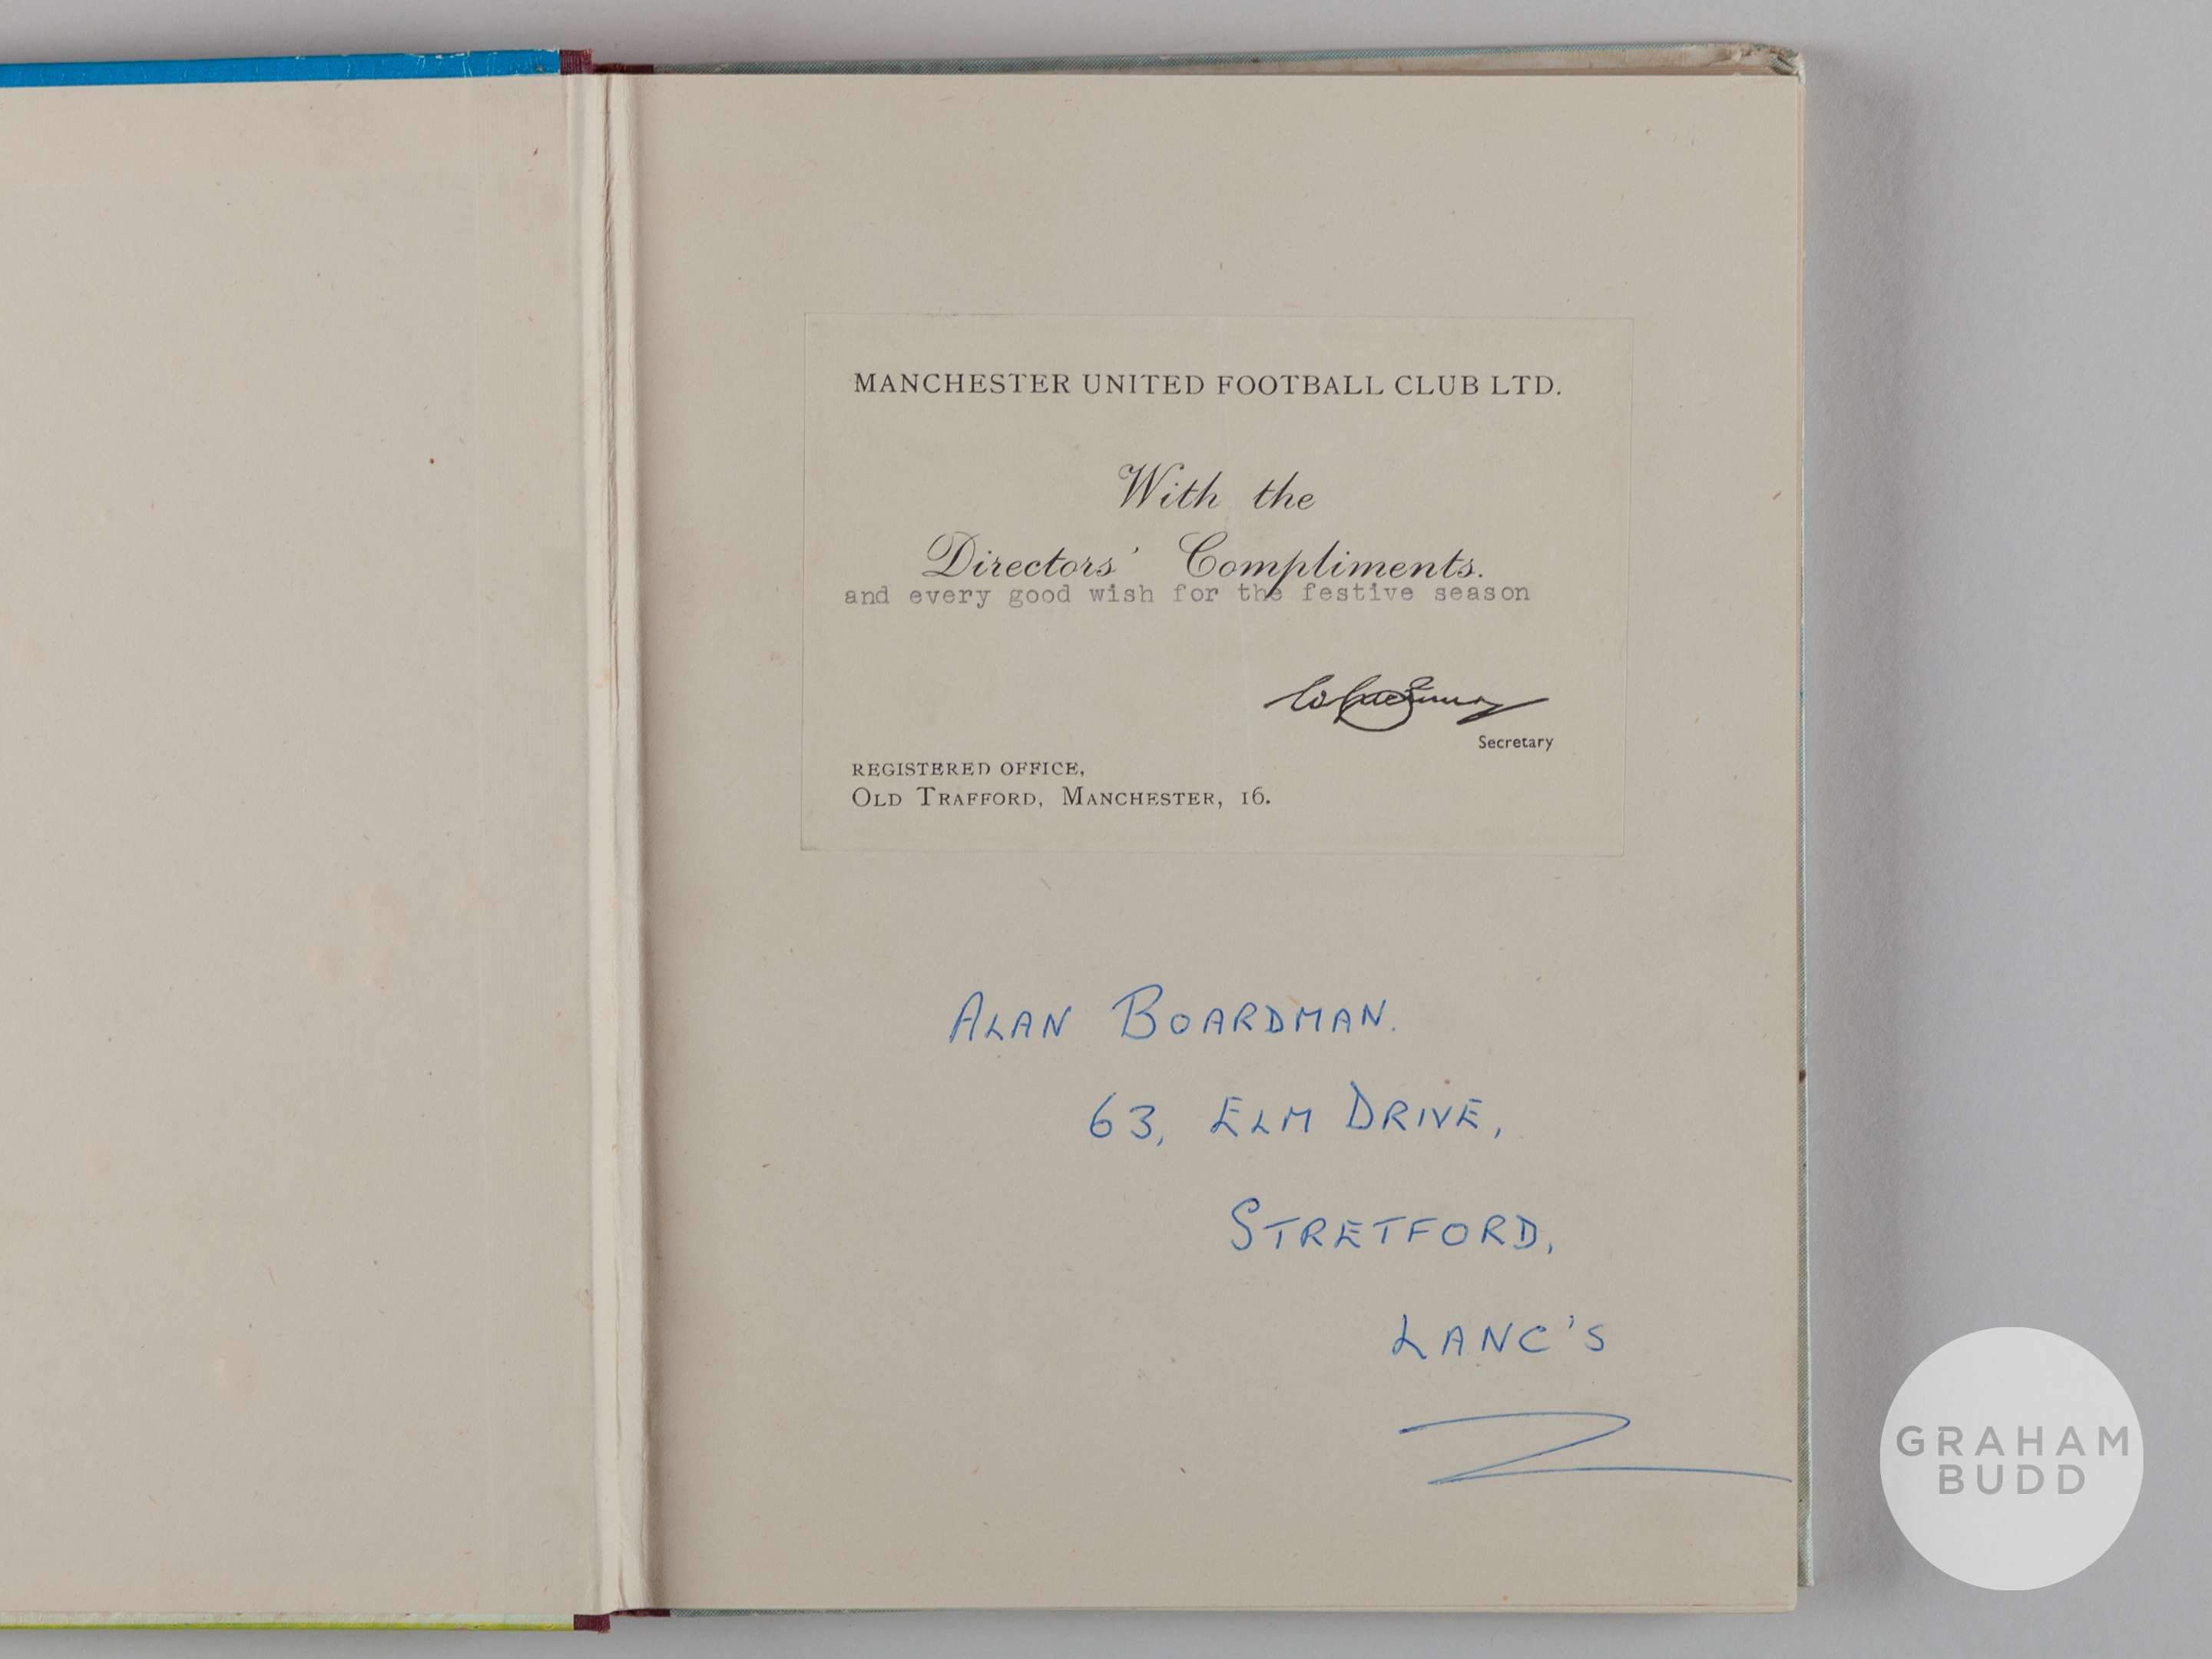 MANCHESTER UNITED FOOTBALL CLUB LTD.
With the
Directors' Compliments.
and every good wish for the festive season
Secretary
REGISTERED OFFICE,
OLD TRAFFORD, MANCHESTER, 16.
ALAN BOARDMAN.
63, ELM DRIVE,
STRETFORD,
LANC'S
GRAHAM
BUDD